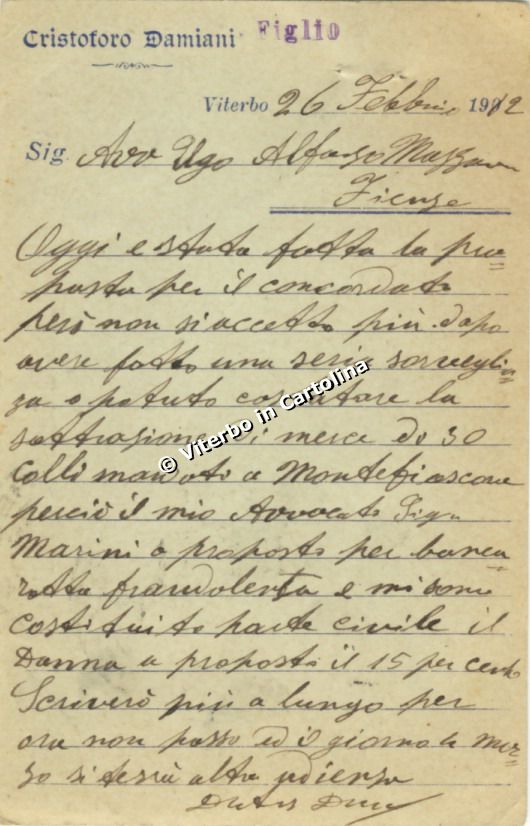 Cristoforo Damiani Figlio
Viterbo 26 Febbraio 1912
Sig. Avv Ugo Alfonso
Firenze
Oggi e stata fatta la pro=
posta per il concordato
però non si accetta più dopo
avere fatto una seria sorveglia
za o potuto costatare la
sottrazione di merce di 30
Colli mandati a Montefiascone
perciò il mio Avvocato Sign
Marini a proposto per banca
rotta fraudolenta e mi sono
costituito parte civile il
Danna a proposto il 15 per cento
Scriverò più a lungo per
ora non posso ed il giorno 4 Mar=
zo si terrà altra udienza
© Viterbo in Cartolina